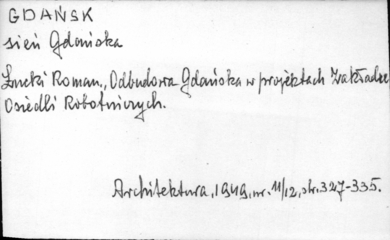 GDAŃSK
sień Gdańska
Roman., Odbudowa Gdańska w projektach Zakładu
Osiedli Robotniczych.
Architektura, 1949, nr. 11/12, str. 327-335.